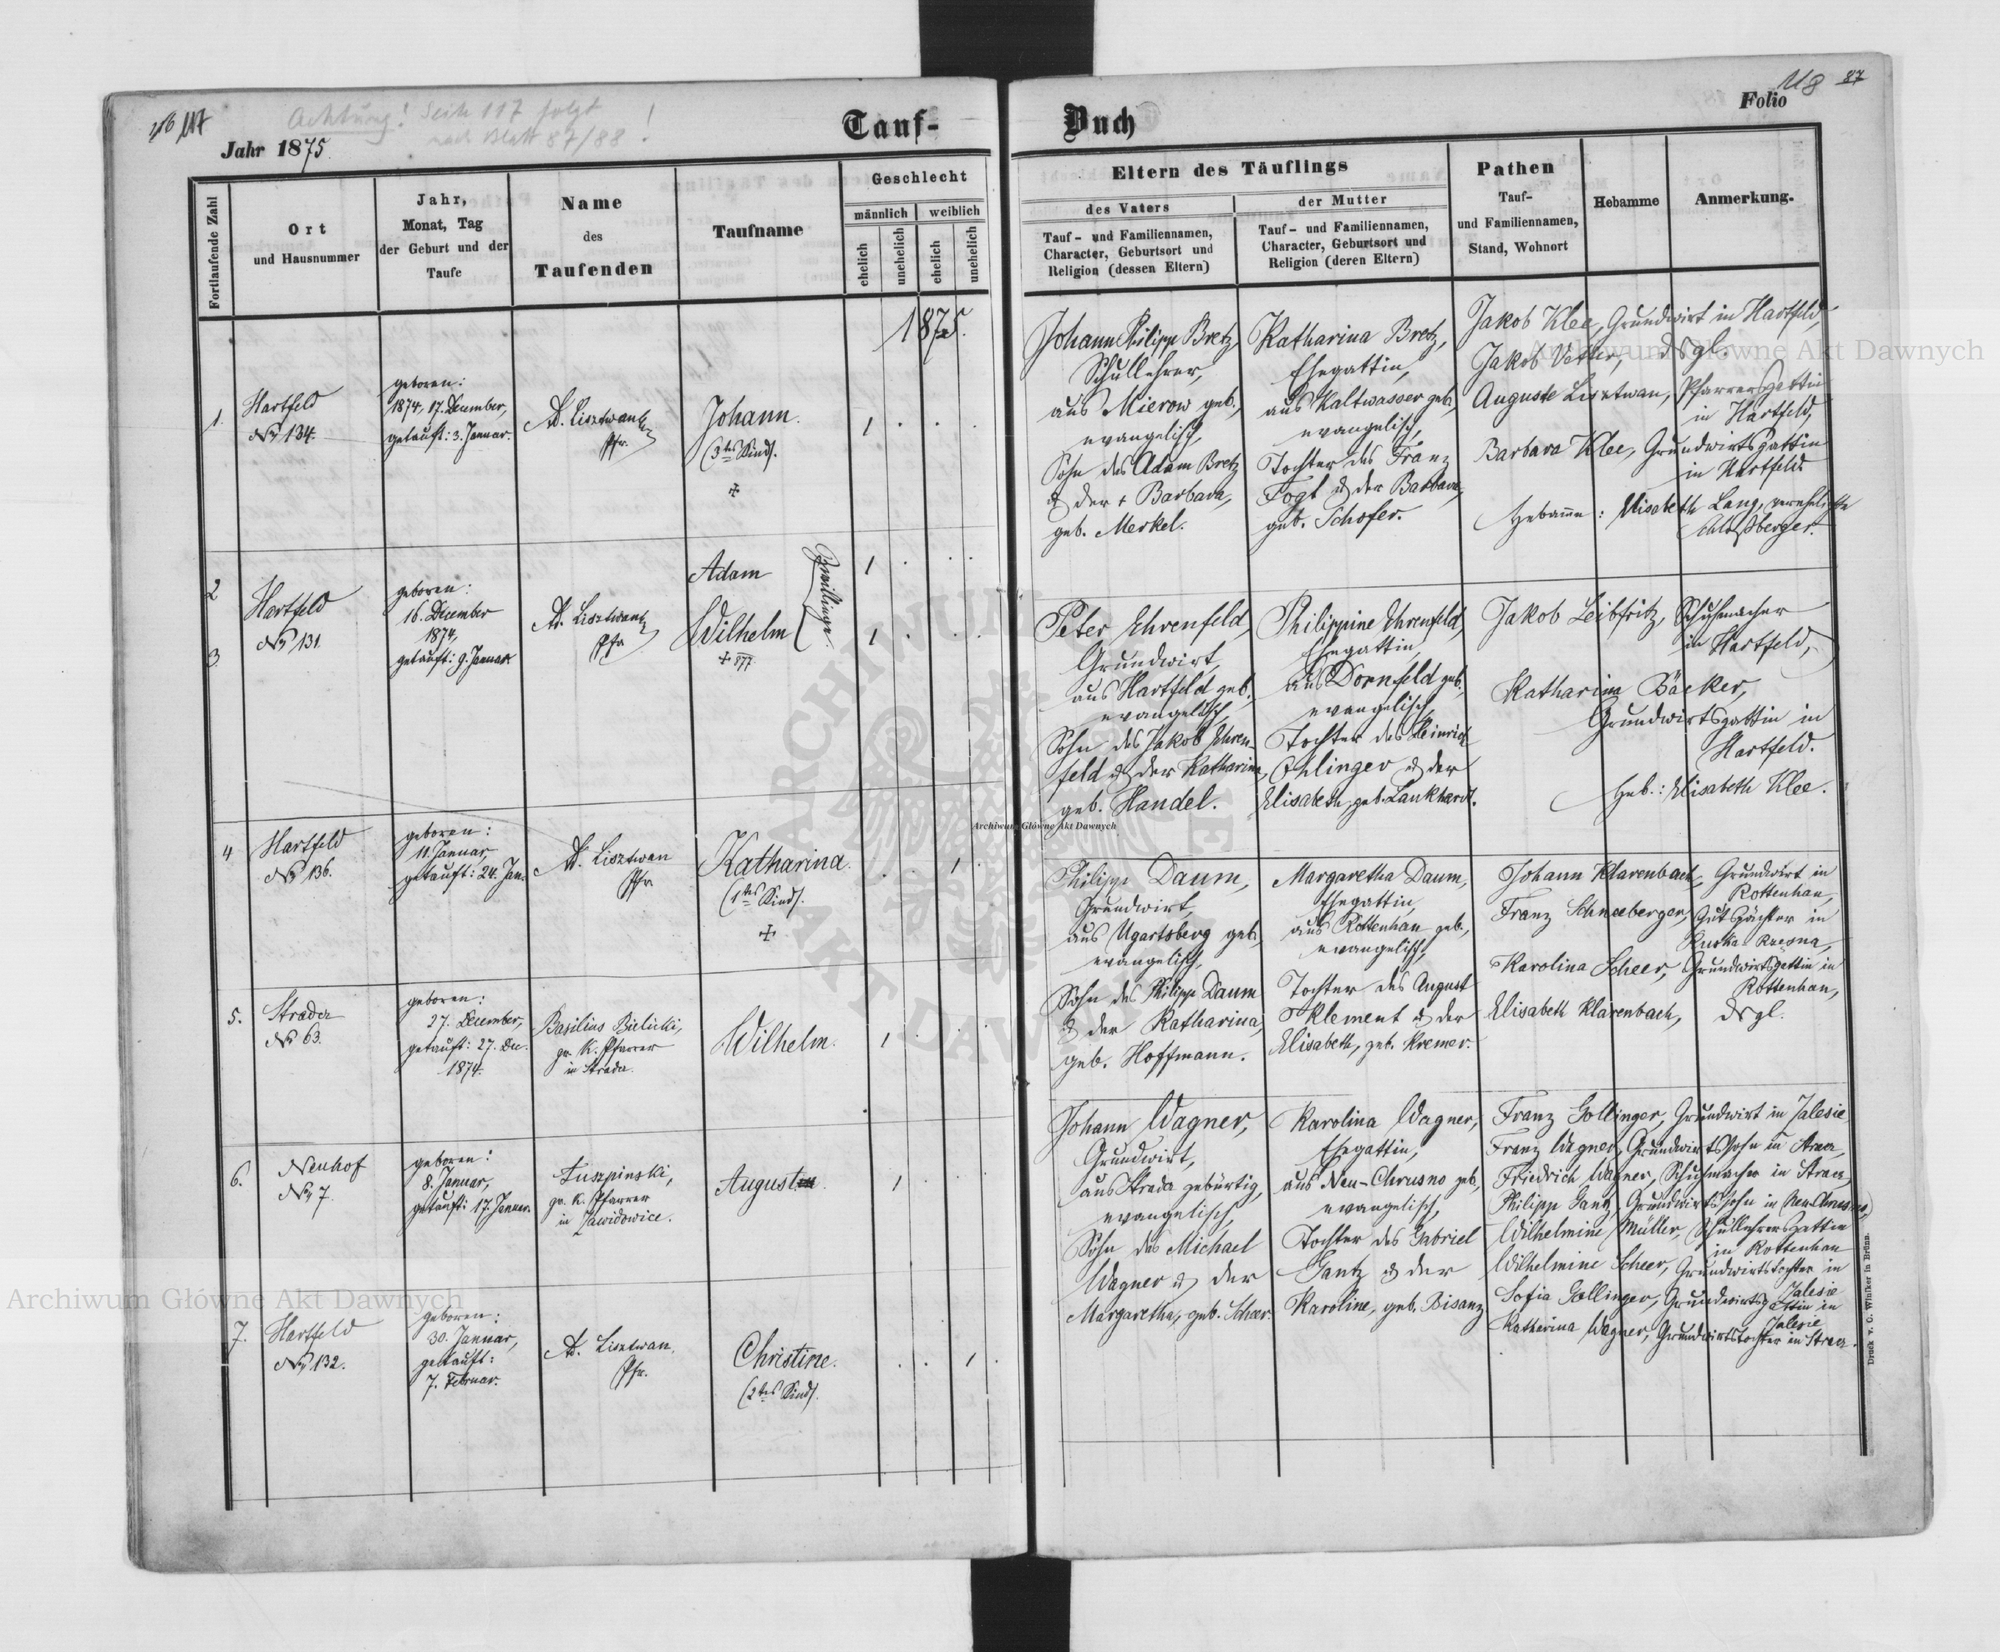 117
Achtung! Seite 117 folgt
nach Blatt 87/88 !
Jahr 1875.
Tauf-
Fortlaufende Zahl
Ort
und Hausnummer
Jahr,
Monat, Tag
der Geburt und der
Taufe
Name
des
Taufenden
Taufname
Geschlecht
männlich
weiblich
ehelich
unehelich
ehelich
unehelich
1875.
1.
Hartfeld
No 134.
geboren:
1874, 17. December,
getauft: 3. Januar.
Ad. Lisztwan
Pfr.
Johann.
(3tes Kind).
+
1 . . .
2
3
Hartfeld
No 131
geboren:
16. December
1874,
getauft: 9. Januar
Ad. Lisztwan
Pfr
Adam
Wilhelm
+ 877
Zwillinge.
1 . . .
1 . . .
4
Hartfeld
No 136.
geboren:
11. Januar,
getauft: 24. Jan.
Ad. Lisztwan
Pfr
Katharina.
(1tes Kind).
+
. . 1 .
5.
Strader
No 63.
geboren:
27. December,
getauft: 27. Dec.
1874.
Basilius Bielicki,
gr. K. Pfarrer
in Strada.
Wilhelm.
1 . . .
6.
Neuhof
No 7.
geboren:
8. Januar,
getauft: 17. Januar.
Tuszpinski,
gr. K. Pfarrer
in Zawidowice.
August
1 . . .
7.
Hartfeld
No 132.
geboren:
30. Januar,
getauft:
7. Februar.
Ad. Lisztwan.
Pfr.
Christine.
(2tes Kind).
. . 1 .
Buch
118 87
Folio
Eltern des Täuflings
des Vaters
Tauf- und Familiennamen,
Character, Geburtsort und
Religion (dessen Eltern)
der Mutter
Tauf- und Familiennamen,
Character, Geburtsort und
Religion (deren Eltern)
Pathen
Tauf-
und Familiennamen,
Stand, Wohnort
Hebamme
Anmerkung.
Johann Philipp Bretz,
Schullehrer,
aus Mierow geb.,
evangelisch,
Sohn des Adam Bretz
& der + Barbara,
geb. Merkel.
Katharina Bretz,
Ehegattin,
aus Kaltwasser geb.,
evangelisch,
Tochter des Franz
Fogt & der Barbara,
geb. Schofer.
Jakob Klee, Grundwirt in Hartfeld,
Jakob Vetter, dsgl.
Auguste Lisztwan, Pfarrersgattin
in Hartfeld,
Barbara Klee, Grundwirtsgattin
in Hartfeld
Hebamme: Elisabeth Lang, verehelichte
Schloßberger.
Peter Ehrenfeld,
Grundwirt,
aus Hartfeld geb.,
evangelisch,
Sohn des Jakob Ehren-
feld & der Katharina,
geb. Handel.
Philippine Ehrenfeld,
Ehegattin,
aus Dornfeld geb.,
evangelisch,
Tochter des Heinrich
Ohlinger & der
Elisabeth, geb. Lankhardt.
Jakob Leibfritz, Schuhmacher
in Hartfeld,
Katharina Bäcker,
Grundwirtsgattin in
Hartfeld.
Heb.: Elisabeth Klee.
Philipp Daum,
Grundwirt,
aus Ugartsberg geb.,
evangelisch,
Sohn des Philipp Daum
& der Katharina,
geb. Hoffmann.
Margaretha Daum,
Ehegattin,
aus Rottenhan geb.,
evangelisch,
Tochter des August
Klement & der
Elisabeth, geb. Kremer.
Johann Klarenbach, Grundwirt in
Rottenhan,
Franz Schneeberger, Gutspächter in
Ruska
Karolina Scheer, Grundwirtsgattin in
Rottenhan,
Elisabeth Klarenbach, dsgl.
Johann Wagner,
Grundwirt,
aus Strada gebürtig,
evangelisch,
Sohn des Michael
Wagner & der
Margaretha, geb. Scheer.
Karolina Wagner,
Ehegattin,
aus Neu-Chrusno geb.,
evangelisch,
Tochter des Gabriel
Gantz & der
Karoline, geb. Bisanz
Franz Gollinger, Grundwirt in Zalesie
Franz Wagner, Grundwirtssohn in Strada,
Friedrich Wagner, Schuhmacher in Strada,
Philipp Gantz, Grundwirtssohn in Neu Chrusno,
Wilhelmine Müller, Schullehrersgattin
in Rottenhan
Wilhelmine Scheer, Grundwirtstochter in
Zalesie
Sofia Gollinger, Grundwirtsgattin in
Zalesie
Katharina Wagner, Grundwirtstochter in Strada.
Druck v. C. Winiker in Brünn.
Archiwum Główne Akt Dawnych
Archiwum Główne Akt Dawnych
Archiwum Główne Akt Dawnych
ARCHIWUM GŁÓWNE
AKT DAWNYCH